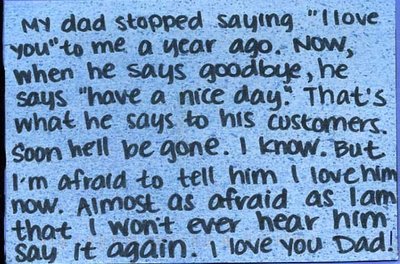 My dad stopped saying "I love
you" to me a year ago. Now,
when he says goodbye, he
says "have a nice day." That's
what he says to his customers.
Soon hell be gone. I know. But
I'm afraid to tell him I love him
now. Almost as afraid as I am
that I won't ever hear him
say it again. I love you Dad!